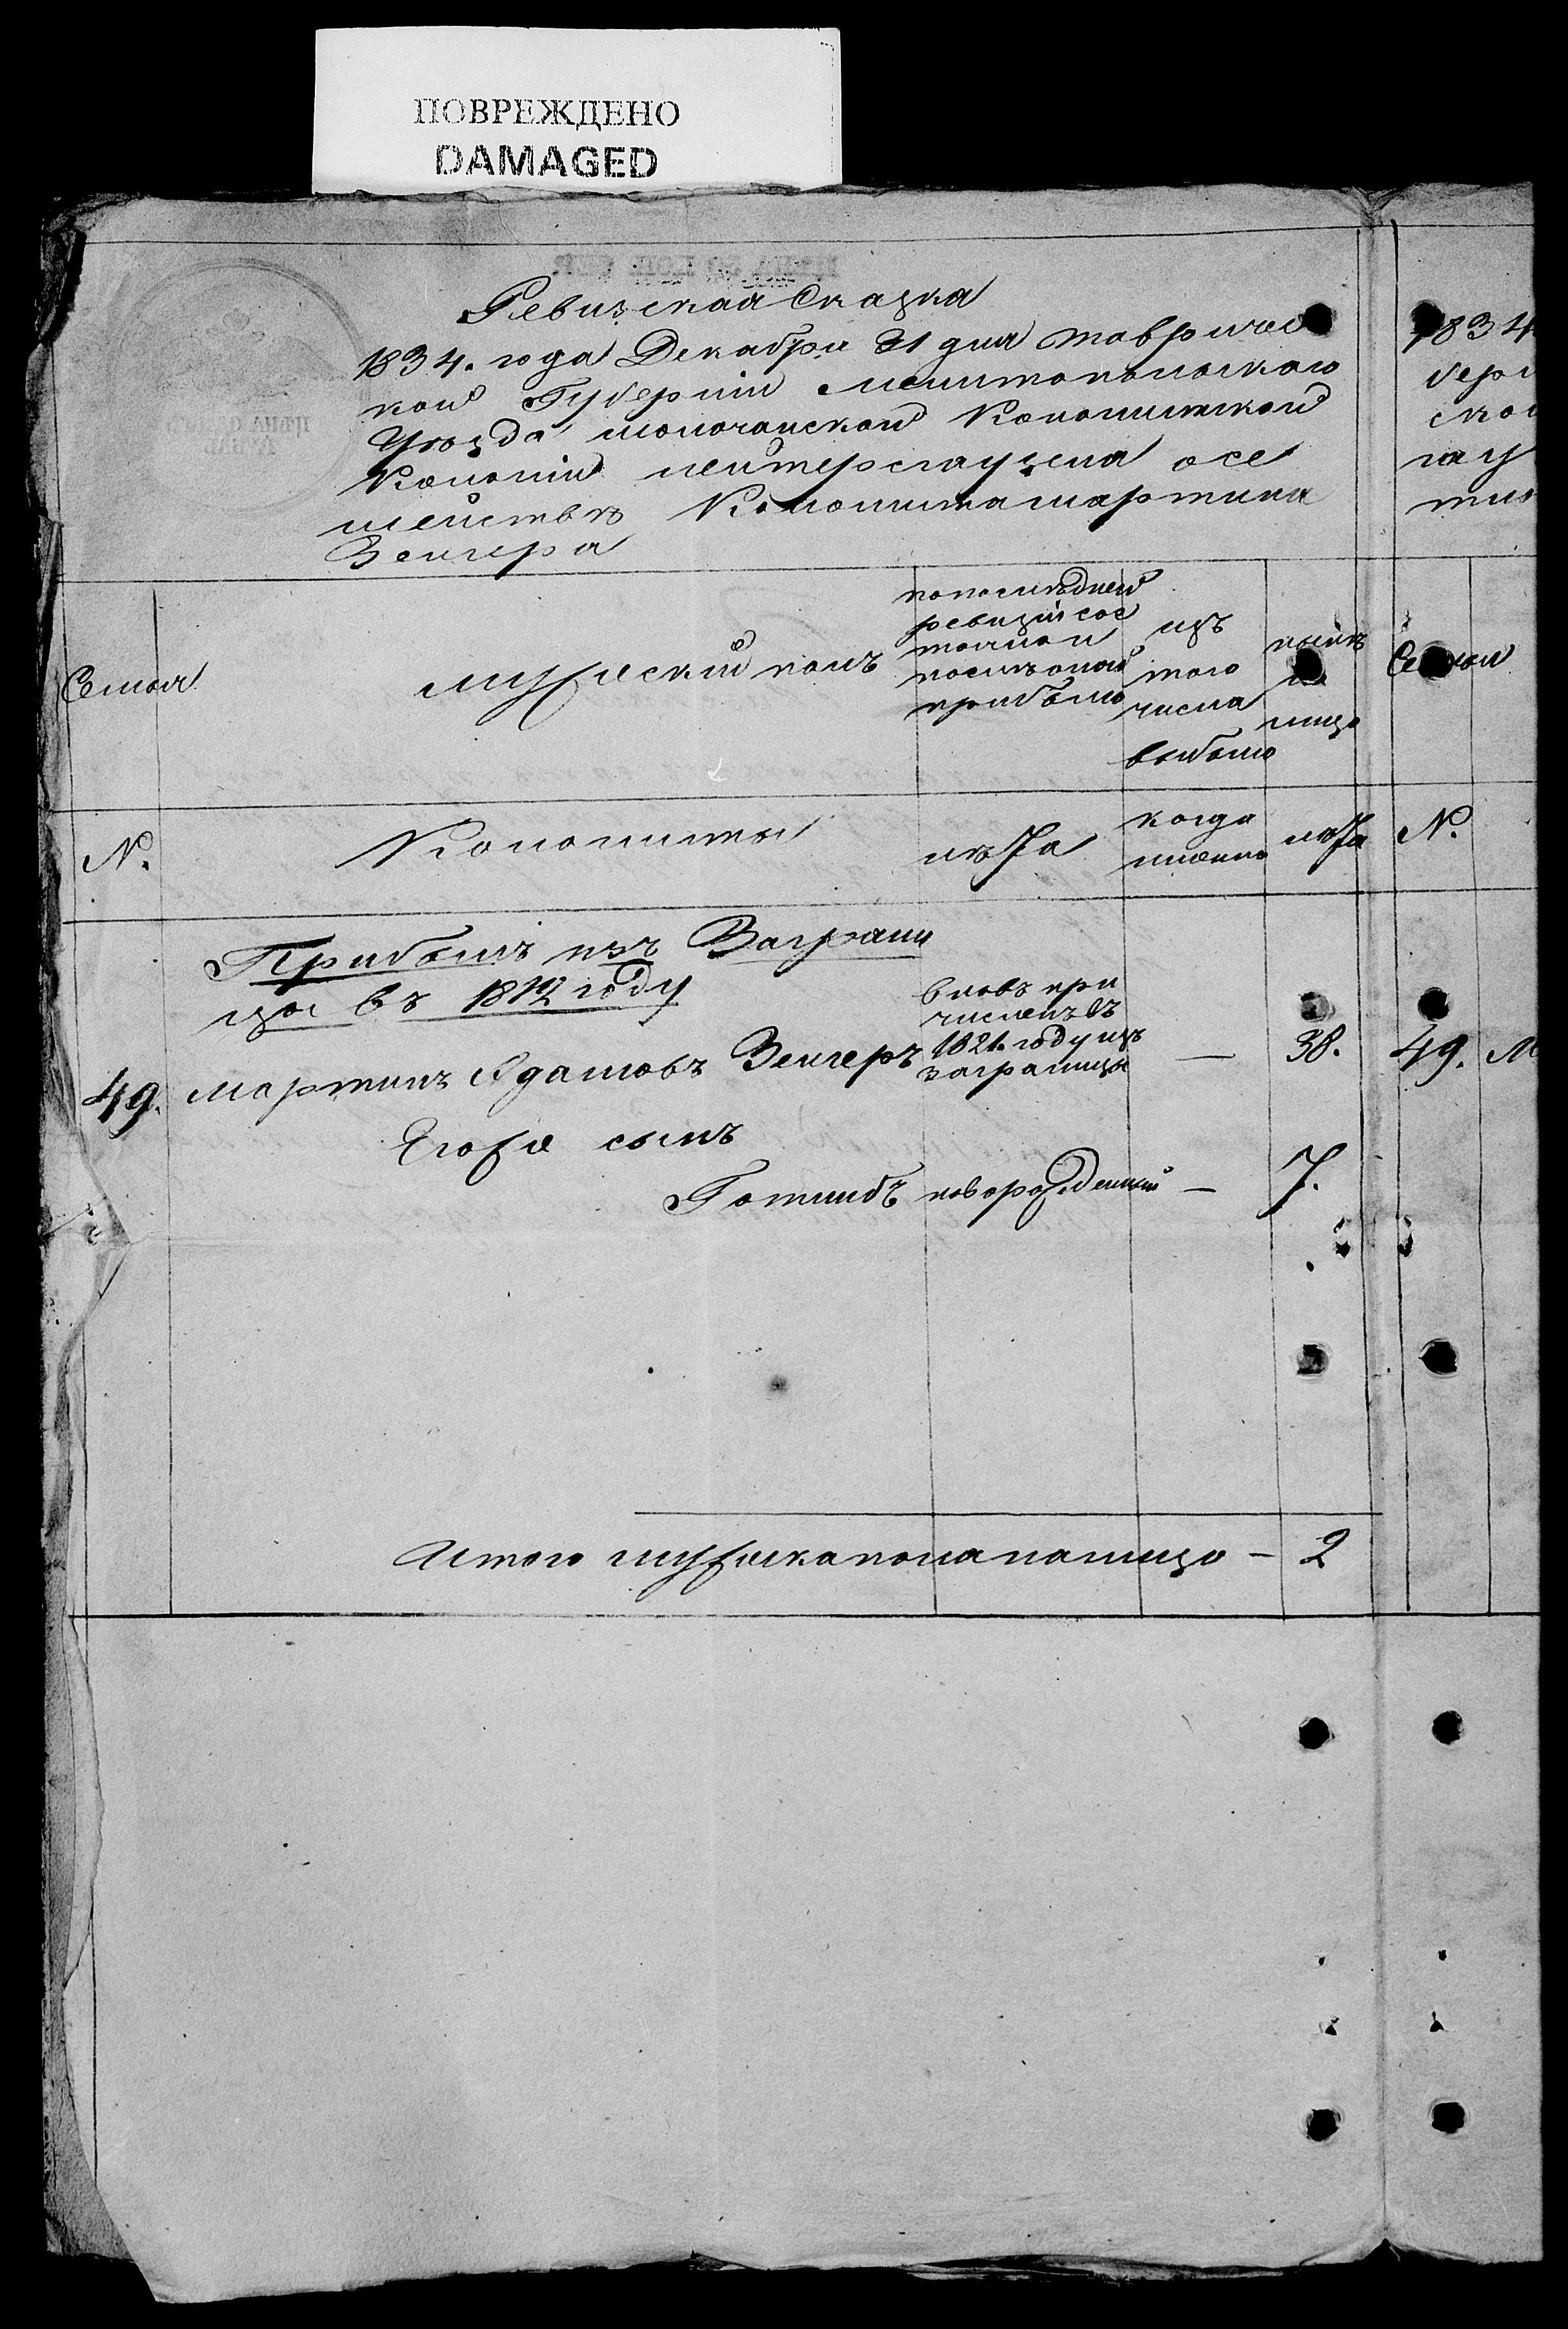 ПОВРЕЖДЕНО
DAMAGED
Ревизская Сказка
1834. года Декабря 31 дня Тавричес
кой Губерніи Мелитопольскаго
Уѣзда Молочанской Колонитской
Колоніи Рейтерсгаузена осе
мействѣ Колониста мартина
Венгера
Семья
мужескій полъ
попослѣдней
ревизіи сос
тояло и
послѣ оной
прибыло
изъ
того
числа
выбыло
нынѣ
на
лицо
№.
Колонисты
лѣта
когда
имянно
лѣта
Прибылъ изъ Заграни
цы въ 1819 году
49. мартинъ Адамовъ Венгеръ
вновь при
численъ въ
1821. году изъ
заграницы
— 38.
Егоже сынъ
Готлибъ новорожденный — 7.
Итого мужеска пола налицо — 2
1834
берн
ской
гауз
тин
Семья
№.
49. М